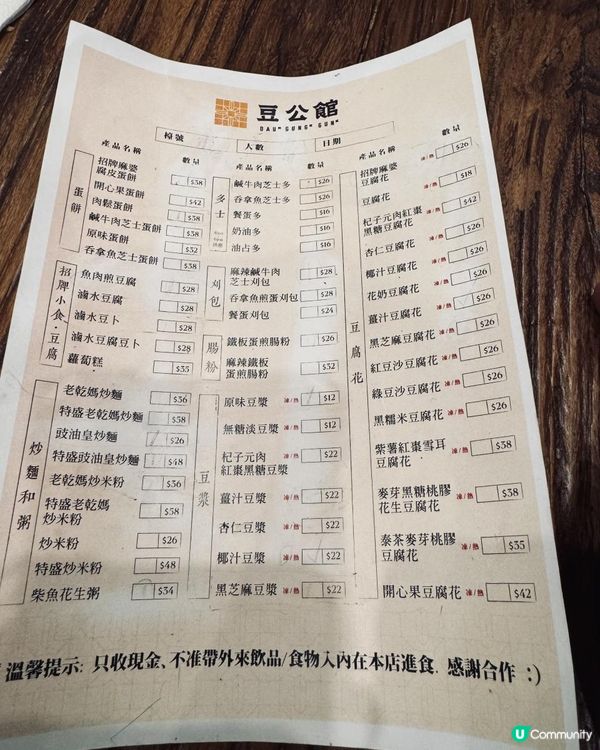 豆公館
DAU GUNG GUN
檯號 人數 日期
產品名稱 數量
蛋餅
招牌麻婆
腐皮蛋餅 $38
開心果蛋餅 $42
肉鬆蛋餅 $38
鹹牛肉芝士蛋餅 $38
原味蛋餅 $32
吞拿魚芝士蛋餅 $38
招牌小食·豆腐
魚肉煎豆腐 $28
滷水豆腐 $28
滷水豆卜 $28
滷水豆腐豆卜 $28
蘿蔔糕 $35
炒麵和粥
老乾媽炒麵 $36
特盛老乾媽炒麵 $58
豉油皇炒麵 $26
特盛豉油皇炒麵 $48
老乾媽炒米粉 $36
特盛老乾媽
炒米粉 $58
炒米粉 $26
特盛炒米粉 $48
柴魚花生粥 $34
產品名稱 數量
多士
鹹牛肉芝士多 $26
吞拿魚芝士多 $26
餐蛋多 $16
奶油多 $16
油占多 $16
刈包
麻辣鹹牛肉
芝士刈包 $28
吞拿魚煎蛋刈包 $28
餐蛋刈包 $24
腸粉
鐵板蛋煎腸粉 $26
麻辣鐵板
蛋煎腸粉 $32
豆漿
原味豆漿 凍/熱 $12
無糖淡豆漿 凍/熱 $12
杞子元肉
紅棗黑糖豆漿 凍/熱 $22
薑汁豆漿 凍/熱 $22
杏仁豆漿 凍/熱 $22
椰汁豆漿 凍/熱 $22
黑芝麻豆漿 凍/熱 $22
產品名稱 數量
豆腐花
招牌麻婆
豆腐花 凍/熱 $26
豆腐花 凍/熱 $18
杞子元肉紅棗
黑糖豆腐花 凍/熱 $42
杏仁豆腐花 凍/熱 $26
椰汁豆腐花 凍/熱 $26
花奶豆腐花 凍/熱 $26
薑汁豆腐花 凍/熱 $26
黑芝麻豆腐花 凍/熱 $26
紅豆沙豆腐花 凍/熱 $26
綠豆沙豆腐花 凍/熱 $26
黑糯米豆腐花 凍/熱 $26
紫薯紅棗雪耳
豆腐花 凍/熱 $38
麥芽黑糖桃膠
花生豆腐花 凍/熱 $38
泰茶麥芽桃膠
豆腐花 凍/熱 $35
開心果豆腐花 凍/熱 $42
溫馨提示: 只收現金、不准帶外來飲品/食物入內在本店進食. 感謝合作 :)
U Community